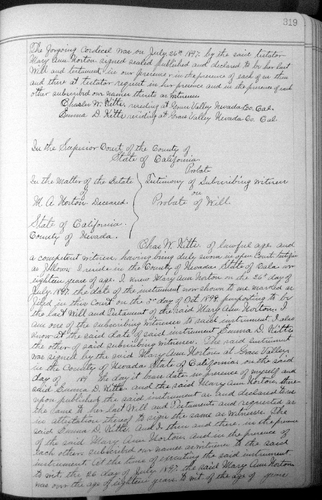 319
The foregoing Codecil was on July 26th 1897 by the said testator
Mary Ann Horton signed sealed published and declared to be her last
Will and testament, in our presence in the presence of each of us then
and there at testator request in her presence and in the presence of each
other subscribed our names thereto as witnesses
Chas W. Kitts residing at Grass Valley Nevada Co. Cal.
Emma D. Kitts residing at Grass Valley Nevada Co. Cal
In the Superior Court of the County of
State of California.
Probate
In the Matter of the Estate
of
M. A. Horton Deceased
Testimony of Subscribing witness
on
Probate of Will.
State of California
County of Nevada.
Chas W. Kitts of lawful age and
a competent witness having being duly sworn in open Court testifies
as follows I reside in the County of Nevada State of Cala over
eighteen years of age. I knew Mary Ann Horton on the 26th day of
July 1897, the date of the instrument now shown to me marked as
filed in this Court on the day of Oct 1898 purporting to be
the last Will and Testament of the said Mary Ann Horton. I
am one of the subscribing witnesses to said instrument. I also
knew at the said date of said instrument Emma D. Kitts
the other of said subscribing witnesses. The said instrument
was signed by the said Mary Ann Horton at Grass Valley
in the County of Nevada State of California on the said
day of 189 the day it bears date in presence of myself and
said Emma D. Kitts and the said Mary Ann Horton there
upon published the said instrument as and declared to us
the same to be her last Will and Testament and requested us
in attestation thereof to sign the same as witnesses. The
said Emma D. Kitts and I then and there in the presence
of the said Mary Ann Horton and in the presence of
each other subscribed our names as witnesses to the said
instrument at the time of executing the said instrument
to wit the 26 day of July 1897 the said Mary Ann Horton
was over the age of eighteen years to wit of the age of